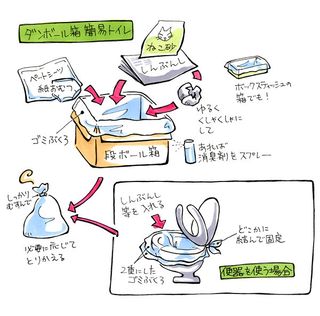 ダンボール箱 簡易トイレ
ねこ砂
しんぶんし
ペットシーツ
紙おむつ
ボックスティッシュの
箱でも!
ゆるく
くしゃくしゃに
して
ゴミぶくろ
段ボール箱
あれば
消臭剤をスプレー
しっかり
むすんで
必要に応じて
とりかえる
しんぶんし
等を入れる
どこかに
結んで固定
2重にした
ゴミぶくろ
便器を使う場合